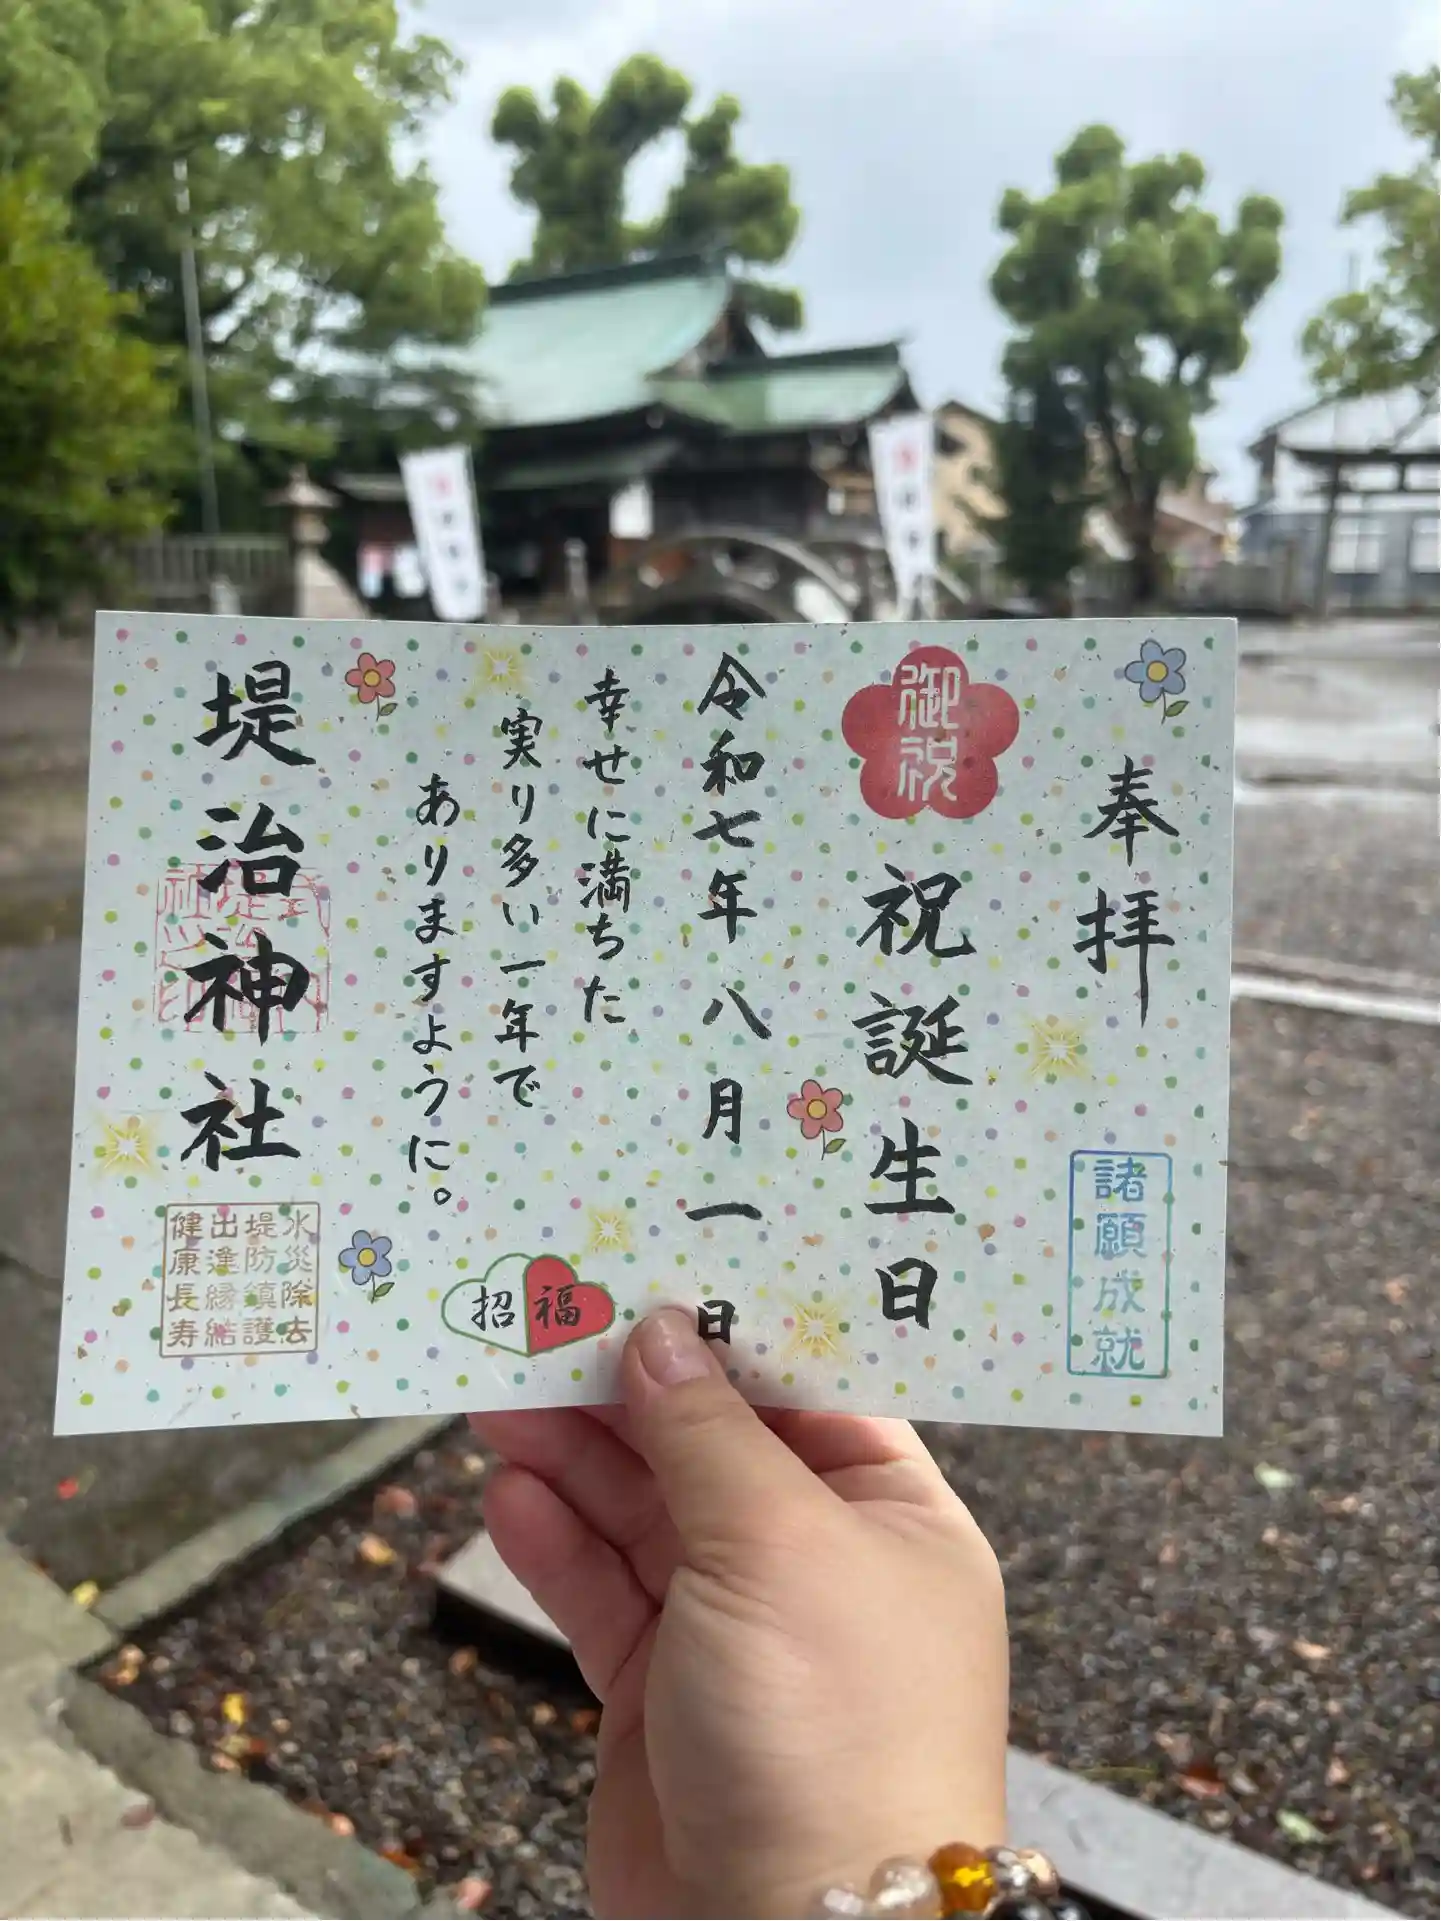 奉拝
諸願成就
御祝
祝誕生日
令和七年八月一日
幸せに満ちた
実り多い一年で
ありますように。
招福
堤治神社
水災除去
堤防鎮護
出逢縁結
健康長寿